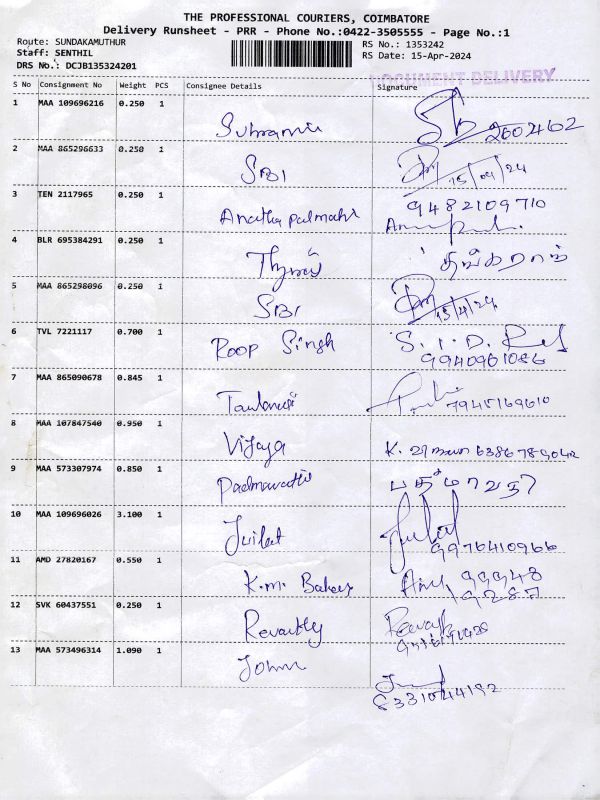 THE PROFESSIONAL COURIERS, COIMBATORE
Delivery Runsheet - PRR - Phone No.:0422-3505555 - Page No.:1
Route: SUNDAKAMUTHUR RS No.: 1353242
Staff: SENTHIL RS Date: 15-Apr-2024
DRS No.: DCJB135324201
DOCUMENT DELIVERY
S No Consignment No Weight PCS Consignee Details Signature
1 MAA 109696216 0.250 1
2602462
2 MAA 865296633 0.250 1 SBI
15/04/24
3 TEN 2117965 0.250 1
9482109710
4 BLR 695384291 0.250 1
தங்கராஜ்
5 MAA 865298096 0.250 1 SBI
15/4/24
6 TVL 7221117 0.700 1 Roop Singh
9940961086
7 MAA 865090678 0.845 1
7945169610
8 MAA 107847540 0.950 1 Vijaya
K. விஜயா 6386789042
9 MAA 573307974 0.850 1 Padmavathi
பத்மாவதி
10 MAA 109696026 3.100 1
9976410966
11 AMD 27820167 0.550 1 K.m. Bakery
99948
9287
12 SVK 60437551 0.250 1
13 MAA 573496314 1.090 1 John
8331044192